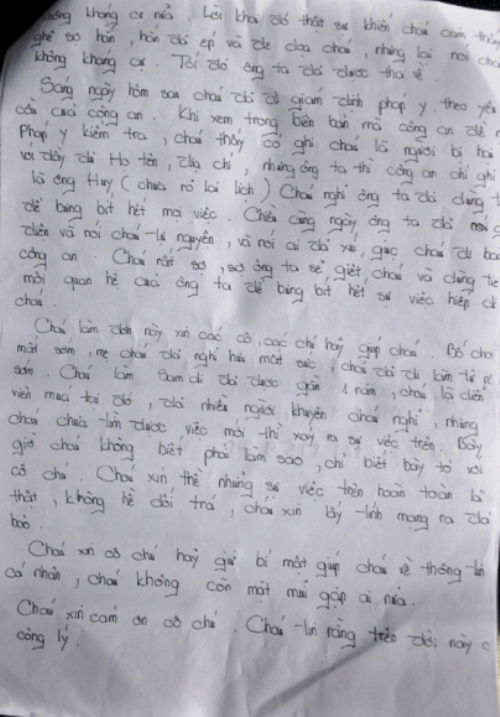 không kháng cự nữa. Lời khai đó thật sự khiến cháu cảm thấy
ghê sợ hơn, hắn đã ép và đe dọa cháu, nhưng lại nói cháu
không kháng cự. Tối đó ông ta đã được thả về.
Sáng ngày hôm sau cháu đã đi giám định pháp y theo yêu
cầu của công an. Khi xem trong biên bản mà công an để
Pháp y kiểm tra, cháu thấy có ghi cháu là người bị hại
với đầy đủ Họ tên, địa chỉ, nhưng ông ta thì công an chỉ ghi
là ông Huy (chưa rõ lai lịch) Cháu nghĩ ông ta đã dùng
để bưng bít hết mọi việc. Chiều cùng ngày ông ta đã
diện và nói cháu tự nguyện, và nói ai đã xúi giục cháu đi báo
công an. Cháu rất sợ, sợ ông ta sẽ giết cháu và dùng
mối quan hệ của ông ta để bưng bít hết sự việc hiếp
cháu.
Cháu làm đơn này xin các cô, các chú hãy giúp cháu. Bố cháu
mất sớm, mẹ cháu đã nghỉ hưu mất sức, cháu đã đi làm từ
sớm. Cháu làm Sam đi đã được gần 1 năm, cháu là diễn
viên múa tại đó, đã nhiều người khuyên cháu nghỉ, nhưng
cháu chưa tìm được việc mới thì xảy ra sự việc trên. Bây
giờ cháu không biết phải làm sao, chỉ biết bày tỏ với
cô chú. Cháu xin thề những sự việc trên hoàn toàn là
thật, không hề dối trá, cháu xin lấy tính mạng ra đảm
bảo.
Cháu xin cô chú hãy giữ bí mật giúp cháu về thông tin
cá nhân, cháu không còn mặt mũi gặp ai nữa.
Cháu xin cảm ơn cô chú. Cháu tin rằng trên đời này
công lý.